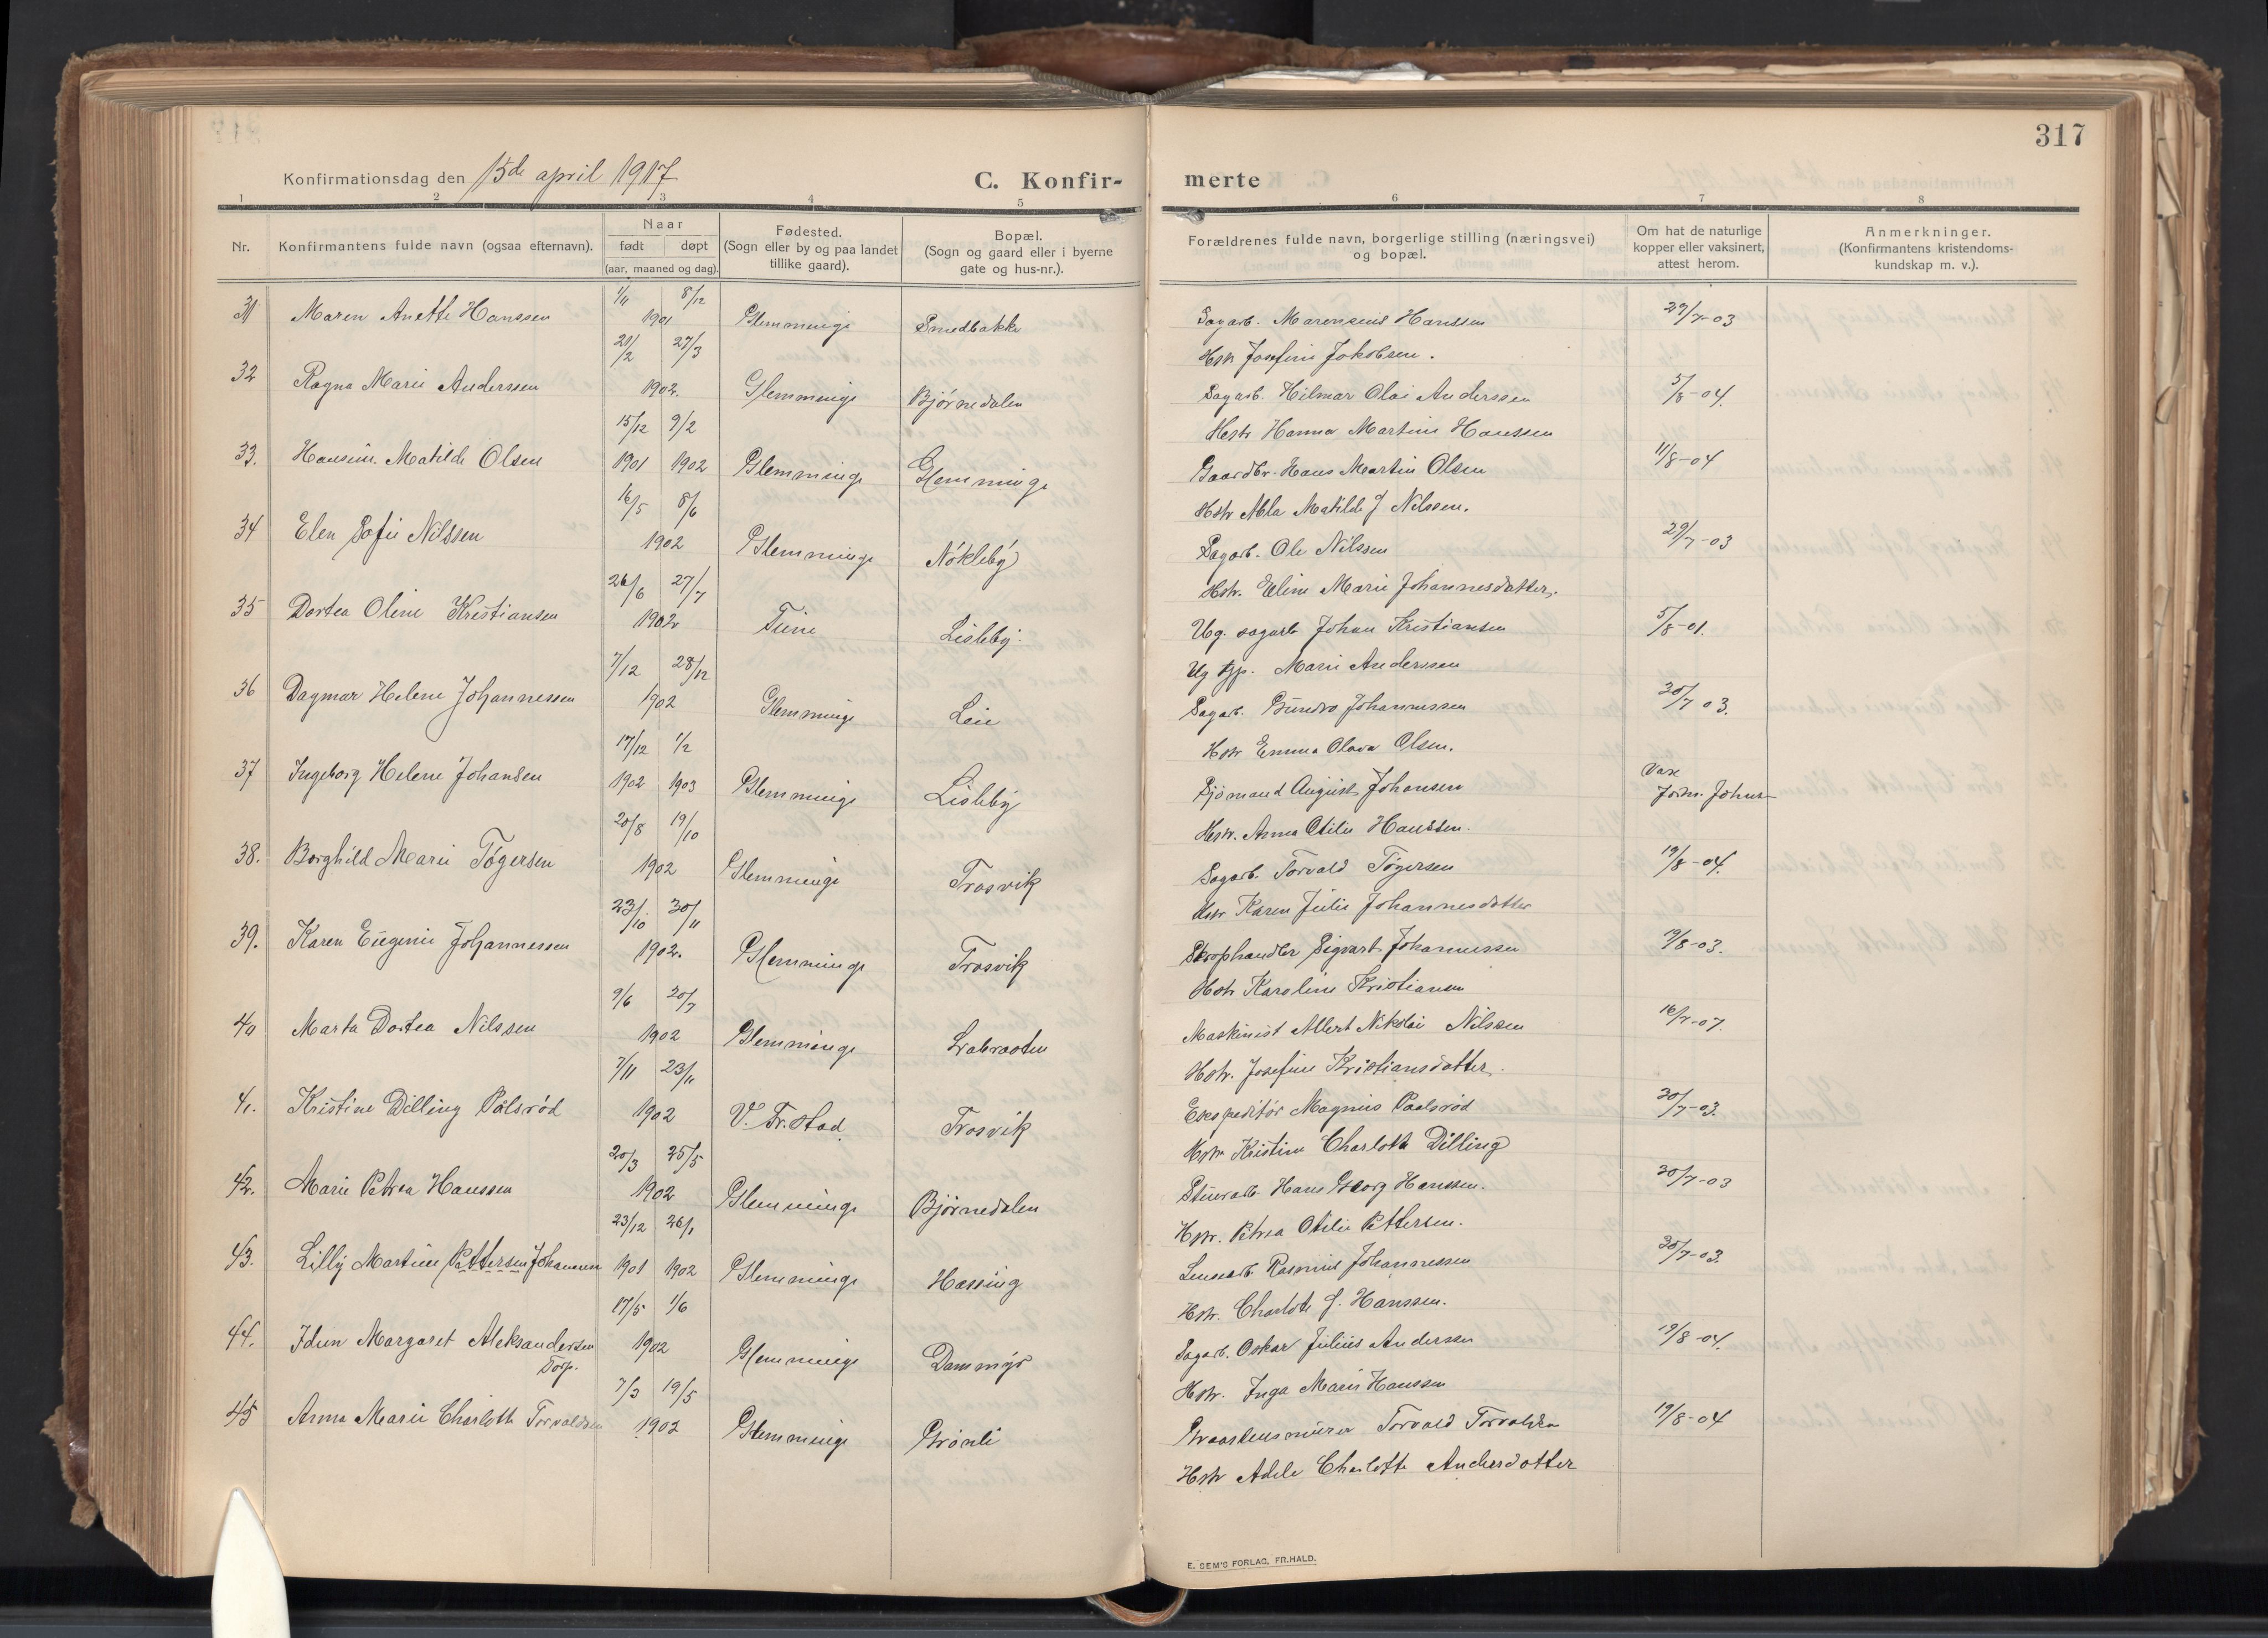 317
Konfirmationsdag den 15de april 1917
C. Konfir- merte
1 2 3 4 5 6 7 8
Nr.
Konfirmantens fulde navn (ogsaa efternavn).
Naar
født døpt
(aar, maaned og dag).
Fødested.
(Sogn eller by og paa landet
tillike gaard).
Bopæl.
(Sogn og gaard eller i byerne
gate og hus-nr.).
Forældrenes fulde navn, borgerlige stilling (næringsvei)
og bopæl.
Om hat de naturlige
kopper eller vaksinert,
attest herom.
Anmerkninger.
(Konfirmantens kristendoms-
kundskap m. v.).
1/11 8/12
31 Maren Anette Hanssen 1901 Glemminge Smedbakke Sagarb. Marensius Hanssen 29/7-03
21/2 27/3 Hstr Josefine Jakobsen.
32 Ragna Marie Anderssen 1902. Glemminge Bjørnedalen Sagarb. Hilmar Olai Anderssen 5/8-04.
15/12 9/2 Hstr Hanna Martine Hanssen
33. Hansine Matilde Olsen 1901 1902 Glemminge Glemminge Gaardbr. Hans Martin Olsen 11/8-04
16/5 8/6 Hstr Alla Matilde J Nilssen.
34 Elen Sofie Nilssen 1902 Glemminge Nökleby Sagarb. Ole Nilssen 29/7-03
26/6 27/7 Hstr. Eline Marie Johannesdatter.
35 Dortea Oline Kristiansen 1902 Tune Lisleby Ug. sagarb Johan Kristiansen 5/8-01.
7/12 28/12 Ug tjp. Marie Anderssen
36 Dagmar Helene Johannessen 1902 Glemminge Leie Sagarb. Gundro Johannessen 30/7 03.
17/12 1/2 Hstr Emma Olava Olsen.
37 Ingeborg Helene Johansen 1902 1903 Glemminge Lisleby Sjömand August Johansen Vax
20/8 19/10 Hstr. Anna Otilie Hanssen.
38. Borghild Marie Tøgersen 1902 Glemminge Trosvik Sagarb. Torvald Tøgersen 19/8-04.
23/10 30/11 Hstr Karen Julie Johannesdatter
39. Karen Eugenie Johannessen 1902. Glemminge Trosvik Skrophandler Sigvart Johannessen 19/8-03.
9/6 20/7 Hstr Karoline Kristiansen
40 Marta Dortea Nilssen 1902 Glemminge Labraaten Maskinist Albert Nikolai Nilssen 16/7-07.
7/11 23/11 Hstr. Josefine Kristiansdatter.
41. Kristine Dilling Pålsrød 1902 V. Fr.stad. Trosvik Ekspeditör Magnus Paalsrød 30/7-03.
20/3 25/5 Hstr Kristine Charlotte Dilling
42. Marie Petrea Hanssen 1902 Glemminge Bjørnedalen Stuerarb. Hans Georg Hanssen. 30/7-03
23/12 26/1 Hstr. Petrea Otilie Pettersen.
43. Lilly Martine Pettersen Johannessen 1901 1902 Glemminge Hassing Lensearb. Rasmus Johannessen 30/7-03.
17/5 1/6 Hstr. Charlotte J. Hanssen.
44. Idun Margaret Aleksandersen 1902 Glemminge Dammyr Sagarb. Oskar Julius Anderssen 19/8-04.
Torp.
7/3 19/5 Hstr. Inga Marie Hanssen
45 Anna Marie Charlotte Torvaldsen 1902 Glemminge Grönli Graastensmurer Torvald Torvaldsen 19/8-04
Hstr Adele Charlotte Andersdatter
E. SEM'S FORLAG, FR.HALD.